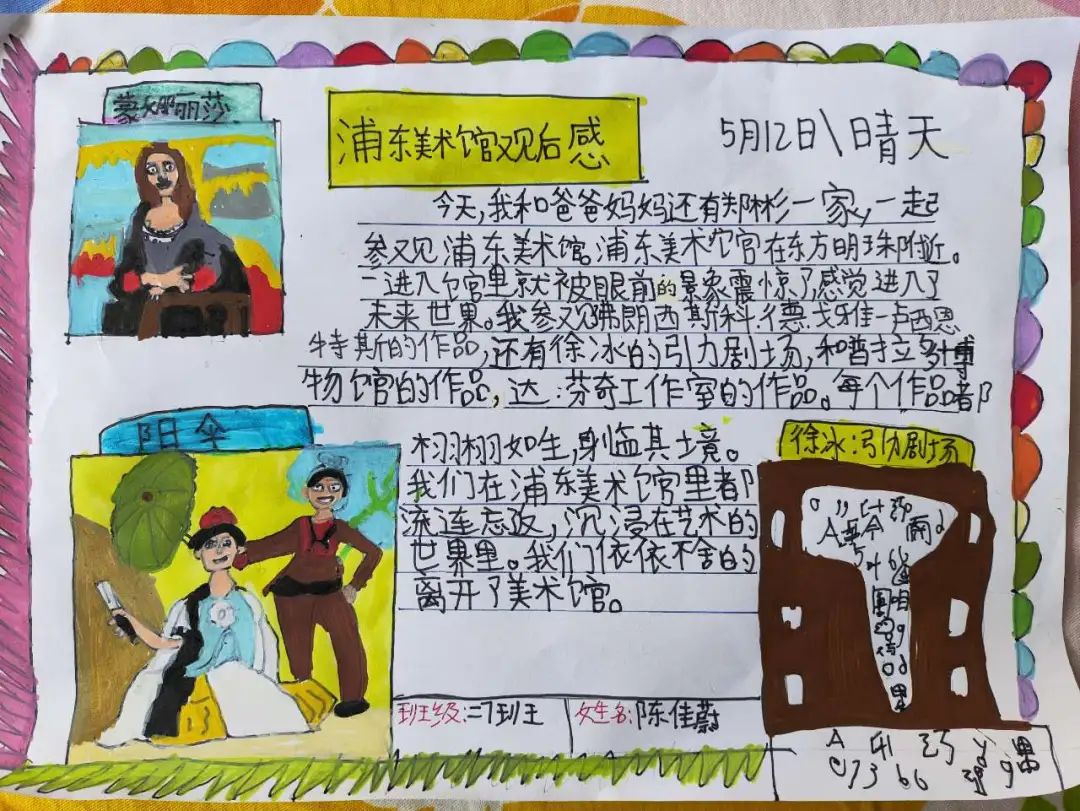 蒙娜丽莎
浦东美术馆观后感
5月12日\晴天
今天,我和爸爸妈妈还有郑彬一家,一起
参观浦东美术馆。浦东美术馆在东方明珠附近。
一进入馆里就被眼前的景象震惊了感觉进入了
未来世界。我参观弗朗西斯科.德戈雅-卢西恩
特斯的作品,还有徐冰的引力剧场,和普拉多博
物馆的作品,达.芬奇工作室的作品。每个作品都
栩栩如生,身临其境。
我们在浦东美术馆里都
流连忘返,沉浸在艺术的
世界里。我们依依不舍的
离开了美术馆。
阳伞
徐冰:引力剧场
班级:二7班
姓名:陈佳蔚